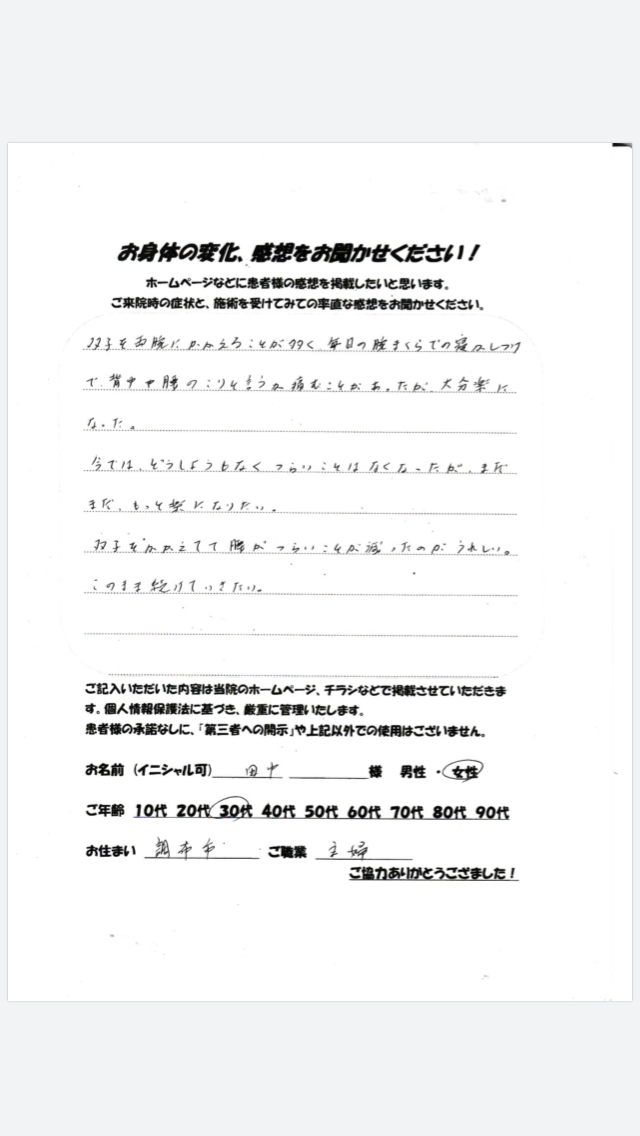 お身体の変化、感想をお聞かせください！
ホームページなどに患者様の感想を掲載したいと思います。
ご来院時の症状と、施術を受けてみての率直な感想をお聞かせください。
双子を両腕にかかえることが多く、毎日の腕まくらでの寝かしつけ
で、背中や腰のこりを言うか痛むことがあったが、大分楽に
なった。
今では、どうしようもなくつらいことはなくなったが、まだ
まだ、もっと楽になりたい。
双子をかかえてて腰がつらいことが減ったのがうれしい。
このまま続けていきたい。
ご記入いただいた内容は当院のホームページ、チラシなどで掲載させていただきま
す。個人情報保護法に基づき、厳重に管理いたします。
患者様の承諾なしに、「第三者への開示」や上記以外での使用はございません。
お名前（イニシャル可） 田中 様 男性 ・ 女性
ご年齢 10代 20代 30代 40代 50代 60代 70代 80代 90代
お住まい 調布市 ご職業 主婦
ご協力ありがとうございました！